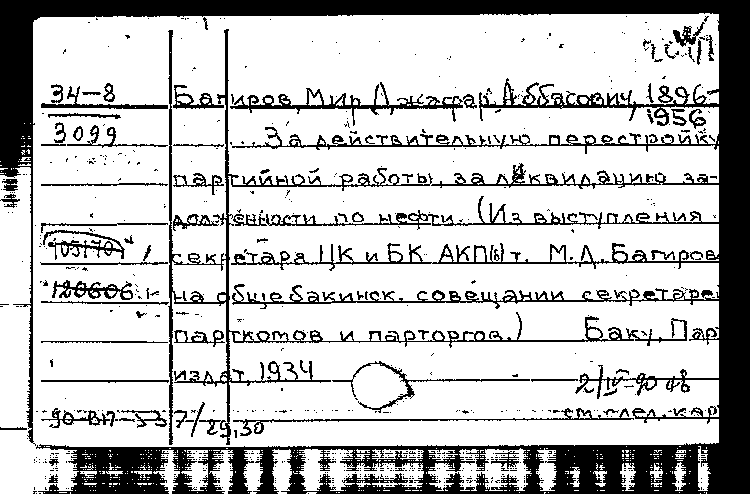 34-8 Багиров, Мир Джафар Аббасович, 1896-
1956
3099 ... За действительную перестройку
партийной работы, за ликвидацию за-
долженности по нефти. (Из выступления
105170 секретаря ЦК и БК АКП(б) т. М.Д. Багиров
120606 на общебакинск. совещании секретарей
парткомов и парторгов.) Баку, Пар
издат, 1934
2/IV-90
90-ВП-53 7/29,30 см. след. кар